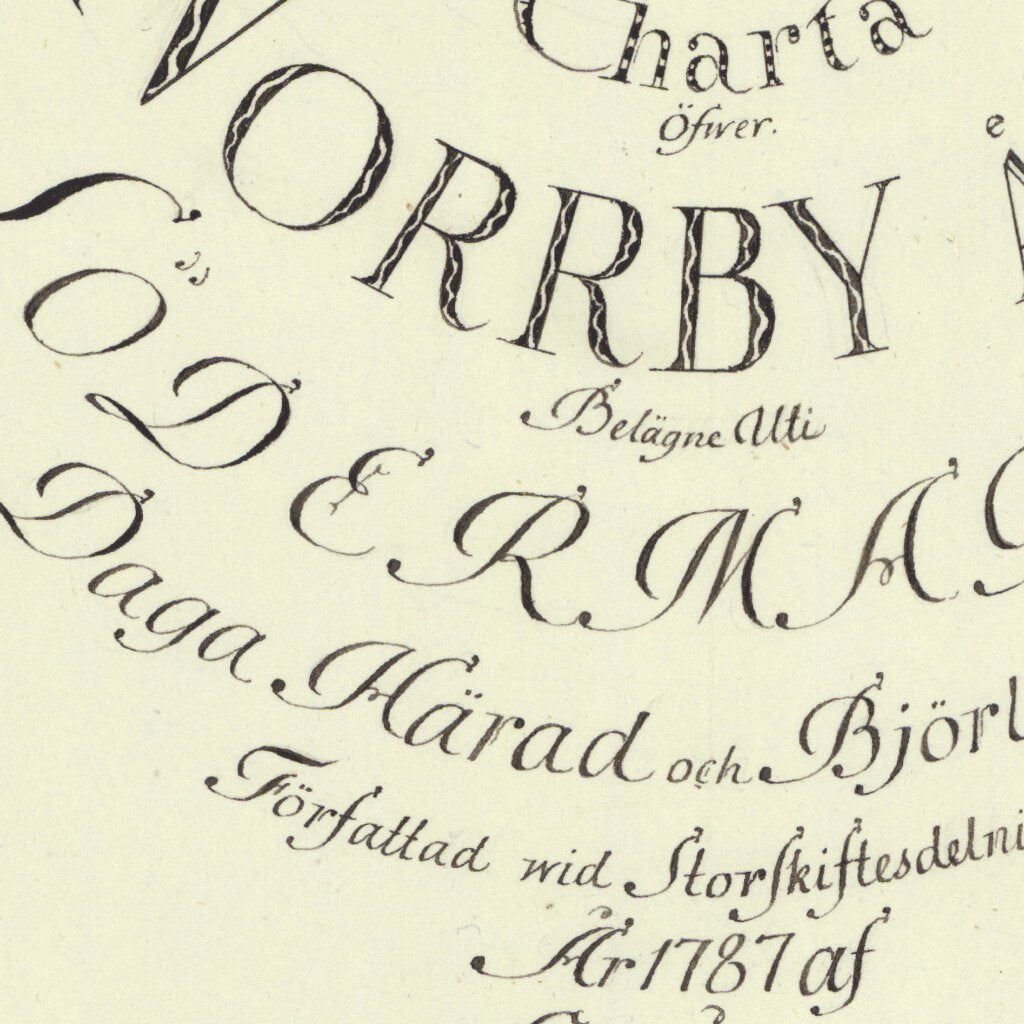 Charta
Öfwer.
NORRBY
Belägne Uti
SÖDERMA
Daga Härad och Björl
Författad wid Storskiftesdelni
År 1787 af